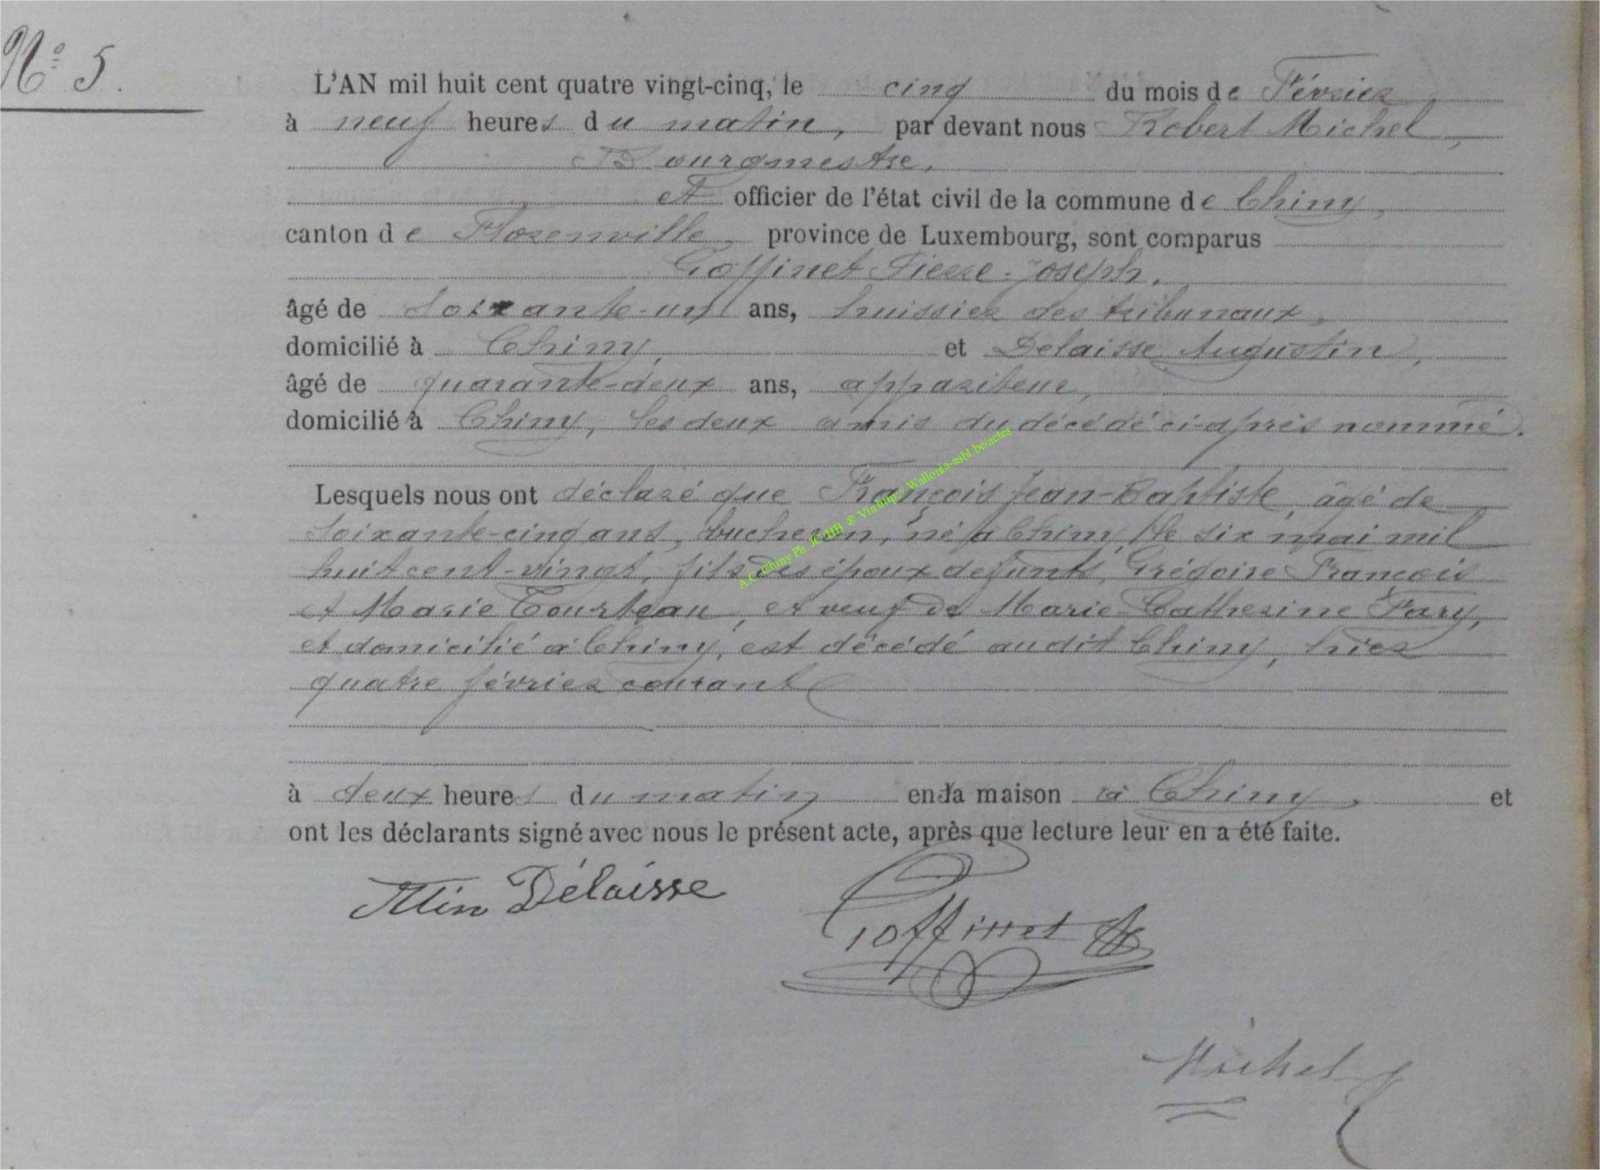 N° 5.
L'AN mil huit cent quatre vingt-cinq, le cinq du mois de Février
à neuf heures du matin, par devant nous Robert Michel,
Bourgmestre,
et officier de l'état civil de la commune de Chiny,
canton de Florenville, province de Luxembourg, sont comparus
Goffinet Pierre-Joseph,
âgé de soixante-un ans, huissier des tribunaux,
domicilié à Chiny, et Delaisse Augustin,
âgé de quarante-deux ans, appariteur,
domicilié à Chiny, les deux amis du décédé ci-après nommé.
Lesquels nous ont déclaré que François Jean-Baptiste, âgé de
soixante-cinq ans, bucheron, né à Chiny, le six mai mil
huit cent-vingt, fils des époux defunts, Grégoire François
et Marie Tourteau, et veuf de Marie-Catherine Fary,
et domicilié à Chiny, est décédé audit Chiny, hier
quatre février courant
à deux heures du matin en la maison à Chiny, et
ont les déclarants signé avec nous le présent acte, après que lecture leur en a été faite.
Délaisse
Goffinet
Michel